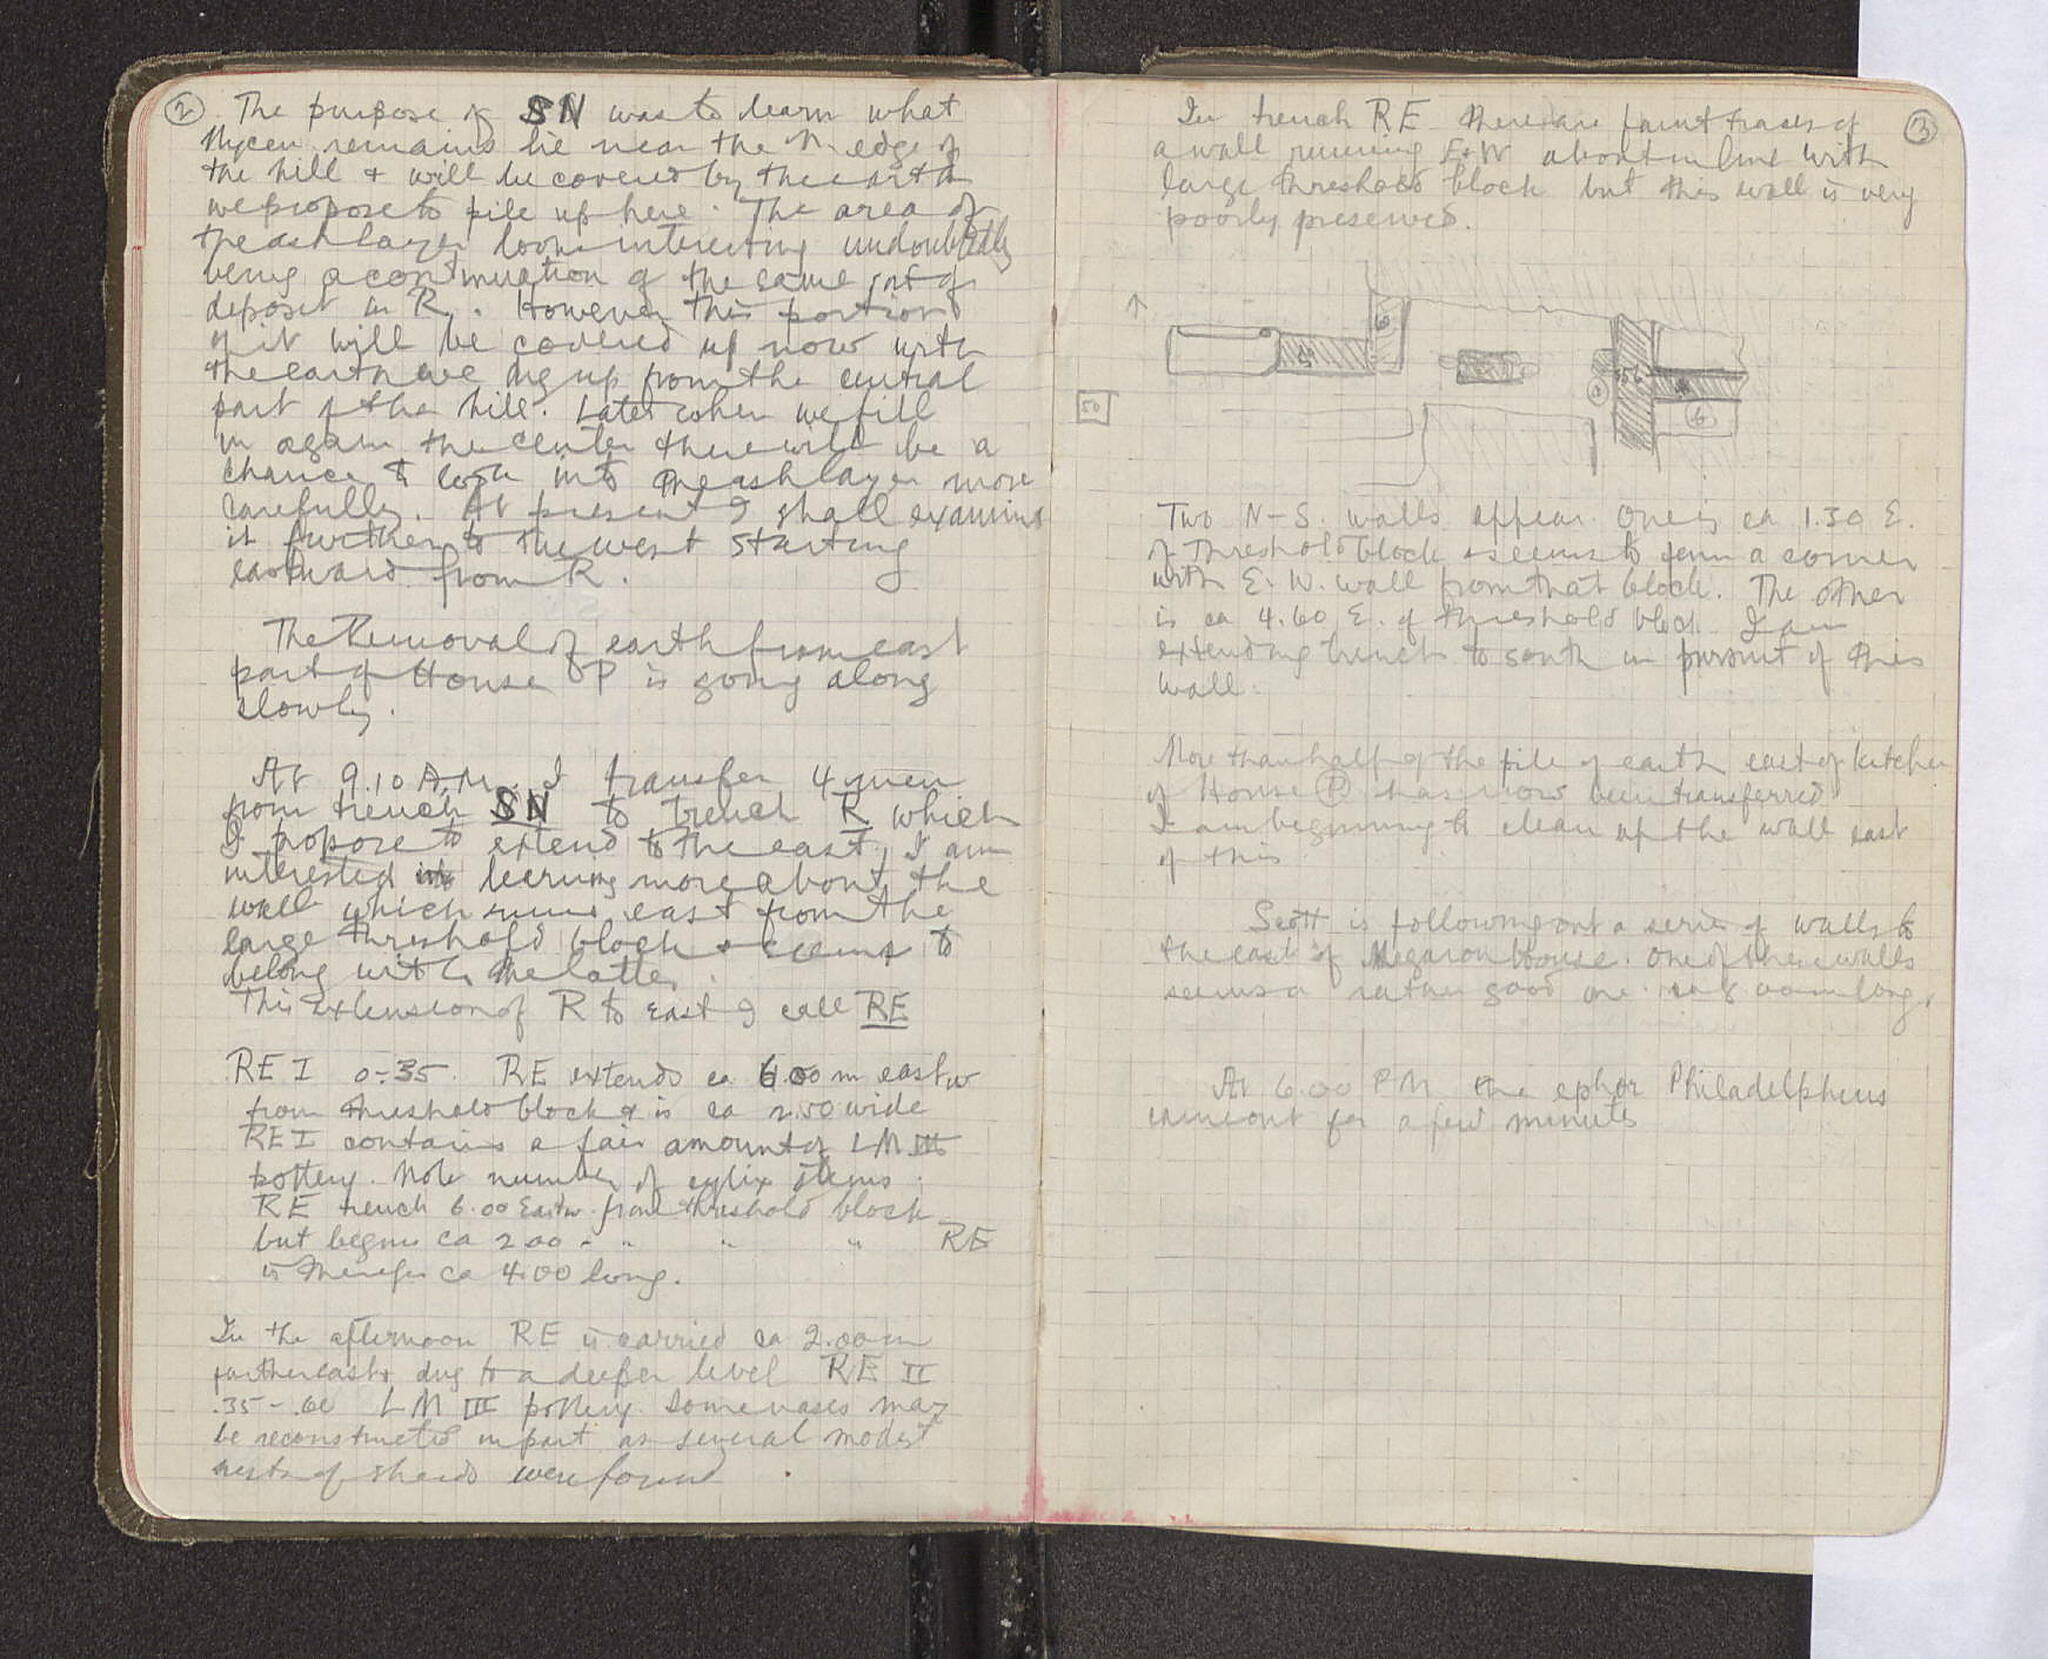 2
The purpose of SN was to learn what
Mycen. remains lie near the N. edge of
the hill & will be covered by the earth
we propose to pile up here. The area of
the ash layer looks interesting undoubtedly
being a continuation of the same sort of
deposit in R. However this portion
of it will be covered up now with
the earth we dig up from the central
part of the hill. Later when we fill
in again the center there will be a
chance to look into the ash layer more
carefully. At present I shall examine
it further to the west starting
eastward from R.
The Removal of earth from east
part of House P is going along
slowly.
At 9.10 A.M. I transfer 4 men
from trench SN to trench R which
I propose to extend to the east. I am
interested in learning more about the
wall which runs east from the
large threshold block & seems to
belong with the latter.
This extension of R to east I call RE
RE I 0-.35. RE extends ca 6.00 m eastw
from threshold block & is ca 2.50 wide
RE I contains a fair amount of LM III
pottery. Note number of cylix stems.
RE trench 6.00 Eastw. from threshold block
but begins ca 2.00 - " " " RE
is therefor ca 4.00 long.
In the afternoon RE is carried ca 2.00 m
further east & dug to a deeper level RE II
.35-.60 LM III pottery. Some vases may
be reconstructed in part as several modest
nests of sherds were found
3
In trench RE there are faint traces of
a wall running E+W about in line with
large threshold block but this wall is very
poorly preserved.
50
Two N-S. walls appear. One is ca 1.30 E.
of threshold block & seems to form a corner
with E. W. wall from that block. The other
is ca 4.60 E. of threshold block. I am
extending trench to south in pursuit of this
wall.
More than half of the pile of earth east of kitchen
of House P has now been transferred
I am beginning to clean up the wall east
of this
Scott is following out a series of walls to
the east of Megaron House. One of these walls
seems a rather good one long.
At 6.00 PM the ephor Philadelpheus
came out for a few minutes